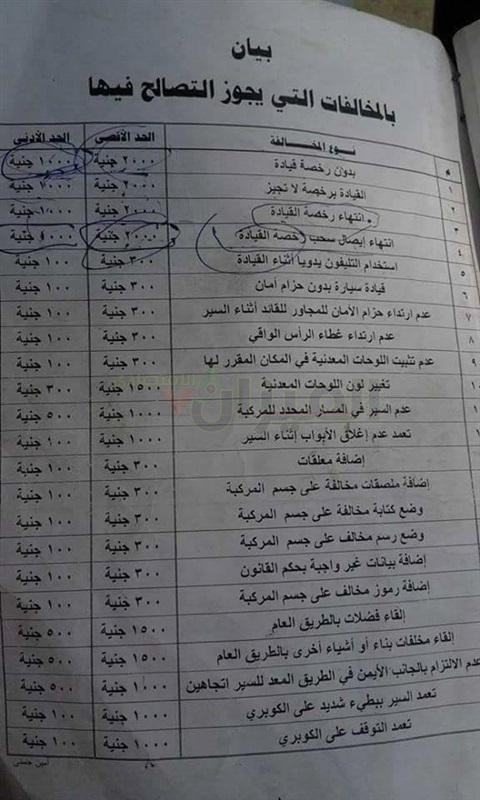 بيان
بالمخالفات التي يجوز التصالح فيها
م نوع المخالفة الحد الأقصى الحد الأدنى
١ بدون رخصة قيادة ٢٠٠٠ جنية ١٠٠٠ جنية
٢ القيادة برخصة لا تجيز ٢٠٠٠ جنية ١٠٠٠ جنية
٣ انتهاء رخصة القيادة ٢٠٠٠ جنية ١٠٠٠ جنية
٤ انتهاء إيصال سحب رخصة القيادة ٢٠٠٠ جنية ١٠٠٠ جنية
٥ استخدام التليفون يدوياً أثناء القيادة ٣٠٠ جنية ١٠٠ جنية
٦ قيادة سيارة بدون حزام أمان ٣٠٠ جنية ١٠٠ جنية
٧ عدم ارتداء حزام الأمان للمجاور للقائد أثناء السير ٣٠٠ جنية ١٠٠ جنية
٨ عدم ارتداء غطاء الرأس الواقي ٣٠٠ جنية ١٠٠ جنية
٩ عدم تثبيت اللوحات المعدنية في المكان المقرر لها ٣٠٠ جنية ١٠٠ جنية
تغيير لون اللوحات المعدنية ١٥٠٠ جنية ٣٠٠ جنية
عدم السير في المسار المحدد للمركبة ١٠٠٠ جنية ٥٠٠ جنية
تعمد عدم إغلاق الأبواب إثناء السير ١٠٠٠ جنية ١٠٠ جنية
إضافة معلقات ٣٠٠ جنية ١٠٠ جنية
إضافة ملصقات مخالفة على جسم المركبة ٣٠٠ جنية ١٠٠ جنية
وضع كتابة مخالفة على جسم المركبة ٣٠٠ جنية ١٠٠ جنية
وضع رسم مخالف على جسم المركبة ٣٠٠ جنية ١٠٠ جنية
إضافة بيانات غير واجبة بحكم القانون ٣٠٠ جنية ١٠٠ جنية
إضافة رموز مخالف على جسم المركبة ٣٠٠ جنية ١٠٠ جنية
إلقاء فضلات بالطريق العام ١٥٠٠ جنية ٥٠٠ جنية
إلقاء مخلفات بناء أو أشياء أخرى بالطريق العام ١٥٠٠ جنية ٥٠٠ جنية
عدم الالتزام بالجانب الأيمن في الطريق المعد للسير اتجاهين ١٠٠٠ جنية ٥٠٠ جنية
تعمد السير ببطيء شديد على الكوبري ١٠٠٠ جنية ١٠٠ جنية
تعمد التوقف على الكوبري ١٠٠٠ جنية ١٠٠ جنية